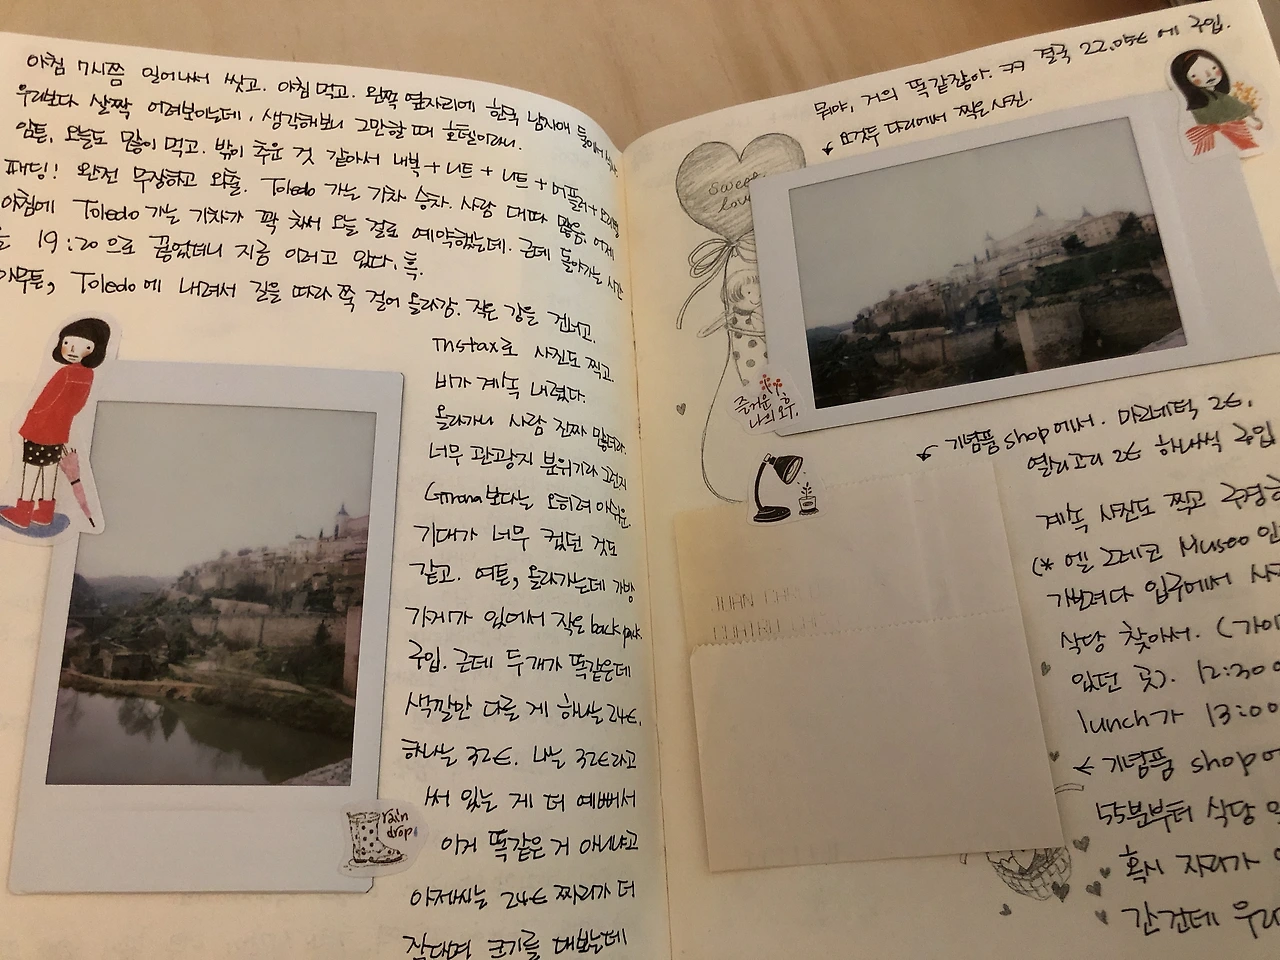 아침 7시쯤 일어나서 씻고. 아침 먹고. 왼쪽 옆자리에 한국 남자애 둘이
우리보다 살짝 어려보이는데, 생각해보니 그만할 때 호텔이라니.
암튼, 오늘도 많이 먹고. 밖이 추운 것 같아서 내복 + 니트 + 니트 + 머플러 +
패딩! 완전 무장하고 외출. Toledo 가는 기차 승차. 사람 대따 많음. 어제
아침에 Toledo 가는 기차가 꽉 차서 오늘 걸로 예약했는데. 근데 돌아가는 시간
을 19:20으로 끊었더니 지금 이러고 있다, 흑.
아무튼, Toledo에 내려서 길을 따라 쭉 걸어 올라감. 작은 강을 건너고.
Instax로 사진도 찍고.
비가 계속 내렸다.
올라가니 사람 진짜 많더라.
너무 관광지 분위기라 그런지
Girona보다는 오히려 아쉬운.
기대가 너무 컸던 것도
같고. 여튼, 올라가는데 가방
가게가 있어서 작은 back pack
구입. 근데 두 개가 똑같은데
색깔만 다를 게 하나는 24€,
하나는 32€. 나는 32€라고
써 있는 게 더 예뻐서
이거 똑같은 거 아니냐고
아저씨는 24€ 짜리가 더
작다며 크기를 대보는데
rain
drop
뭐야, 거의 똑같잖아. ㅋㅋ 결국 22.05€에 구입.
요것두 다리에서 찍은 사진.
sweet
love
즐거운
나의 오후.
기념품 shop에서. 마그네틱 2€,
열쇠고리 2€ 하나씩 구입
계속 사진도 찍고 구경
(* 엘 그레코 Museo
가버려다 입구에서
식당 찾아서. (가이
있던 곳). 12:30
lunch가 13:00
기념품 shop
55분부터 식당
혹시 자리가
간건데 우리
JUAN CARLO